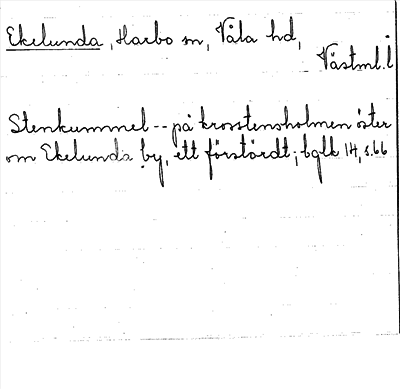 Ekelunda, Harbo sn, Våla hd,
Västml. l
Stenkummel -- på krosstensholmen öster
om Ekelunda by, ett förstördt; bglk 14, s. 66